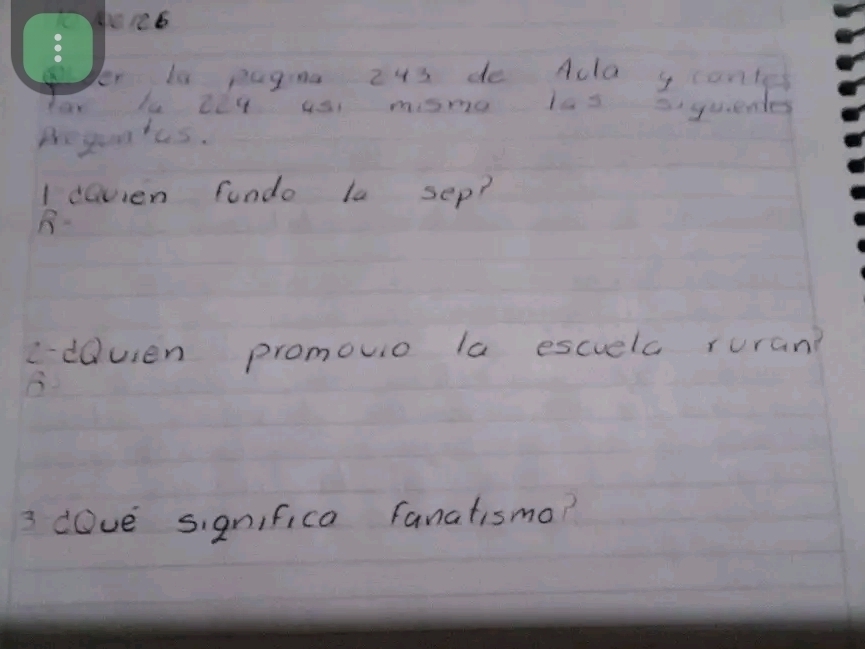 la pagina 243 de Aula y contes
tar la 224 asi mismo las siguientes
preguntas.
1 ¿Quien fundo la sep?
R-
2-¿Quien promovio la escuela ruran?
R-
3 ¿Qué significa fanatismo?